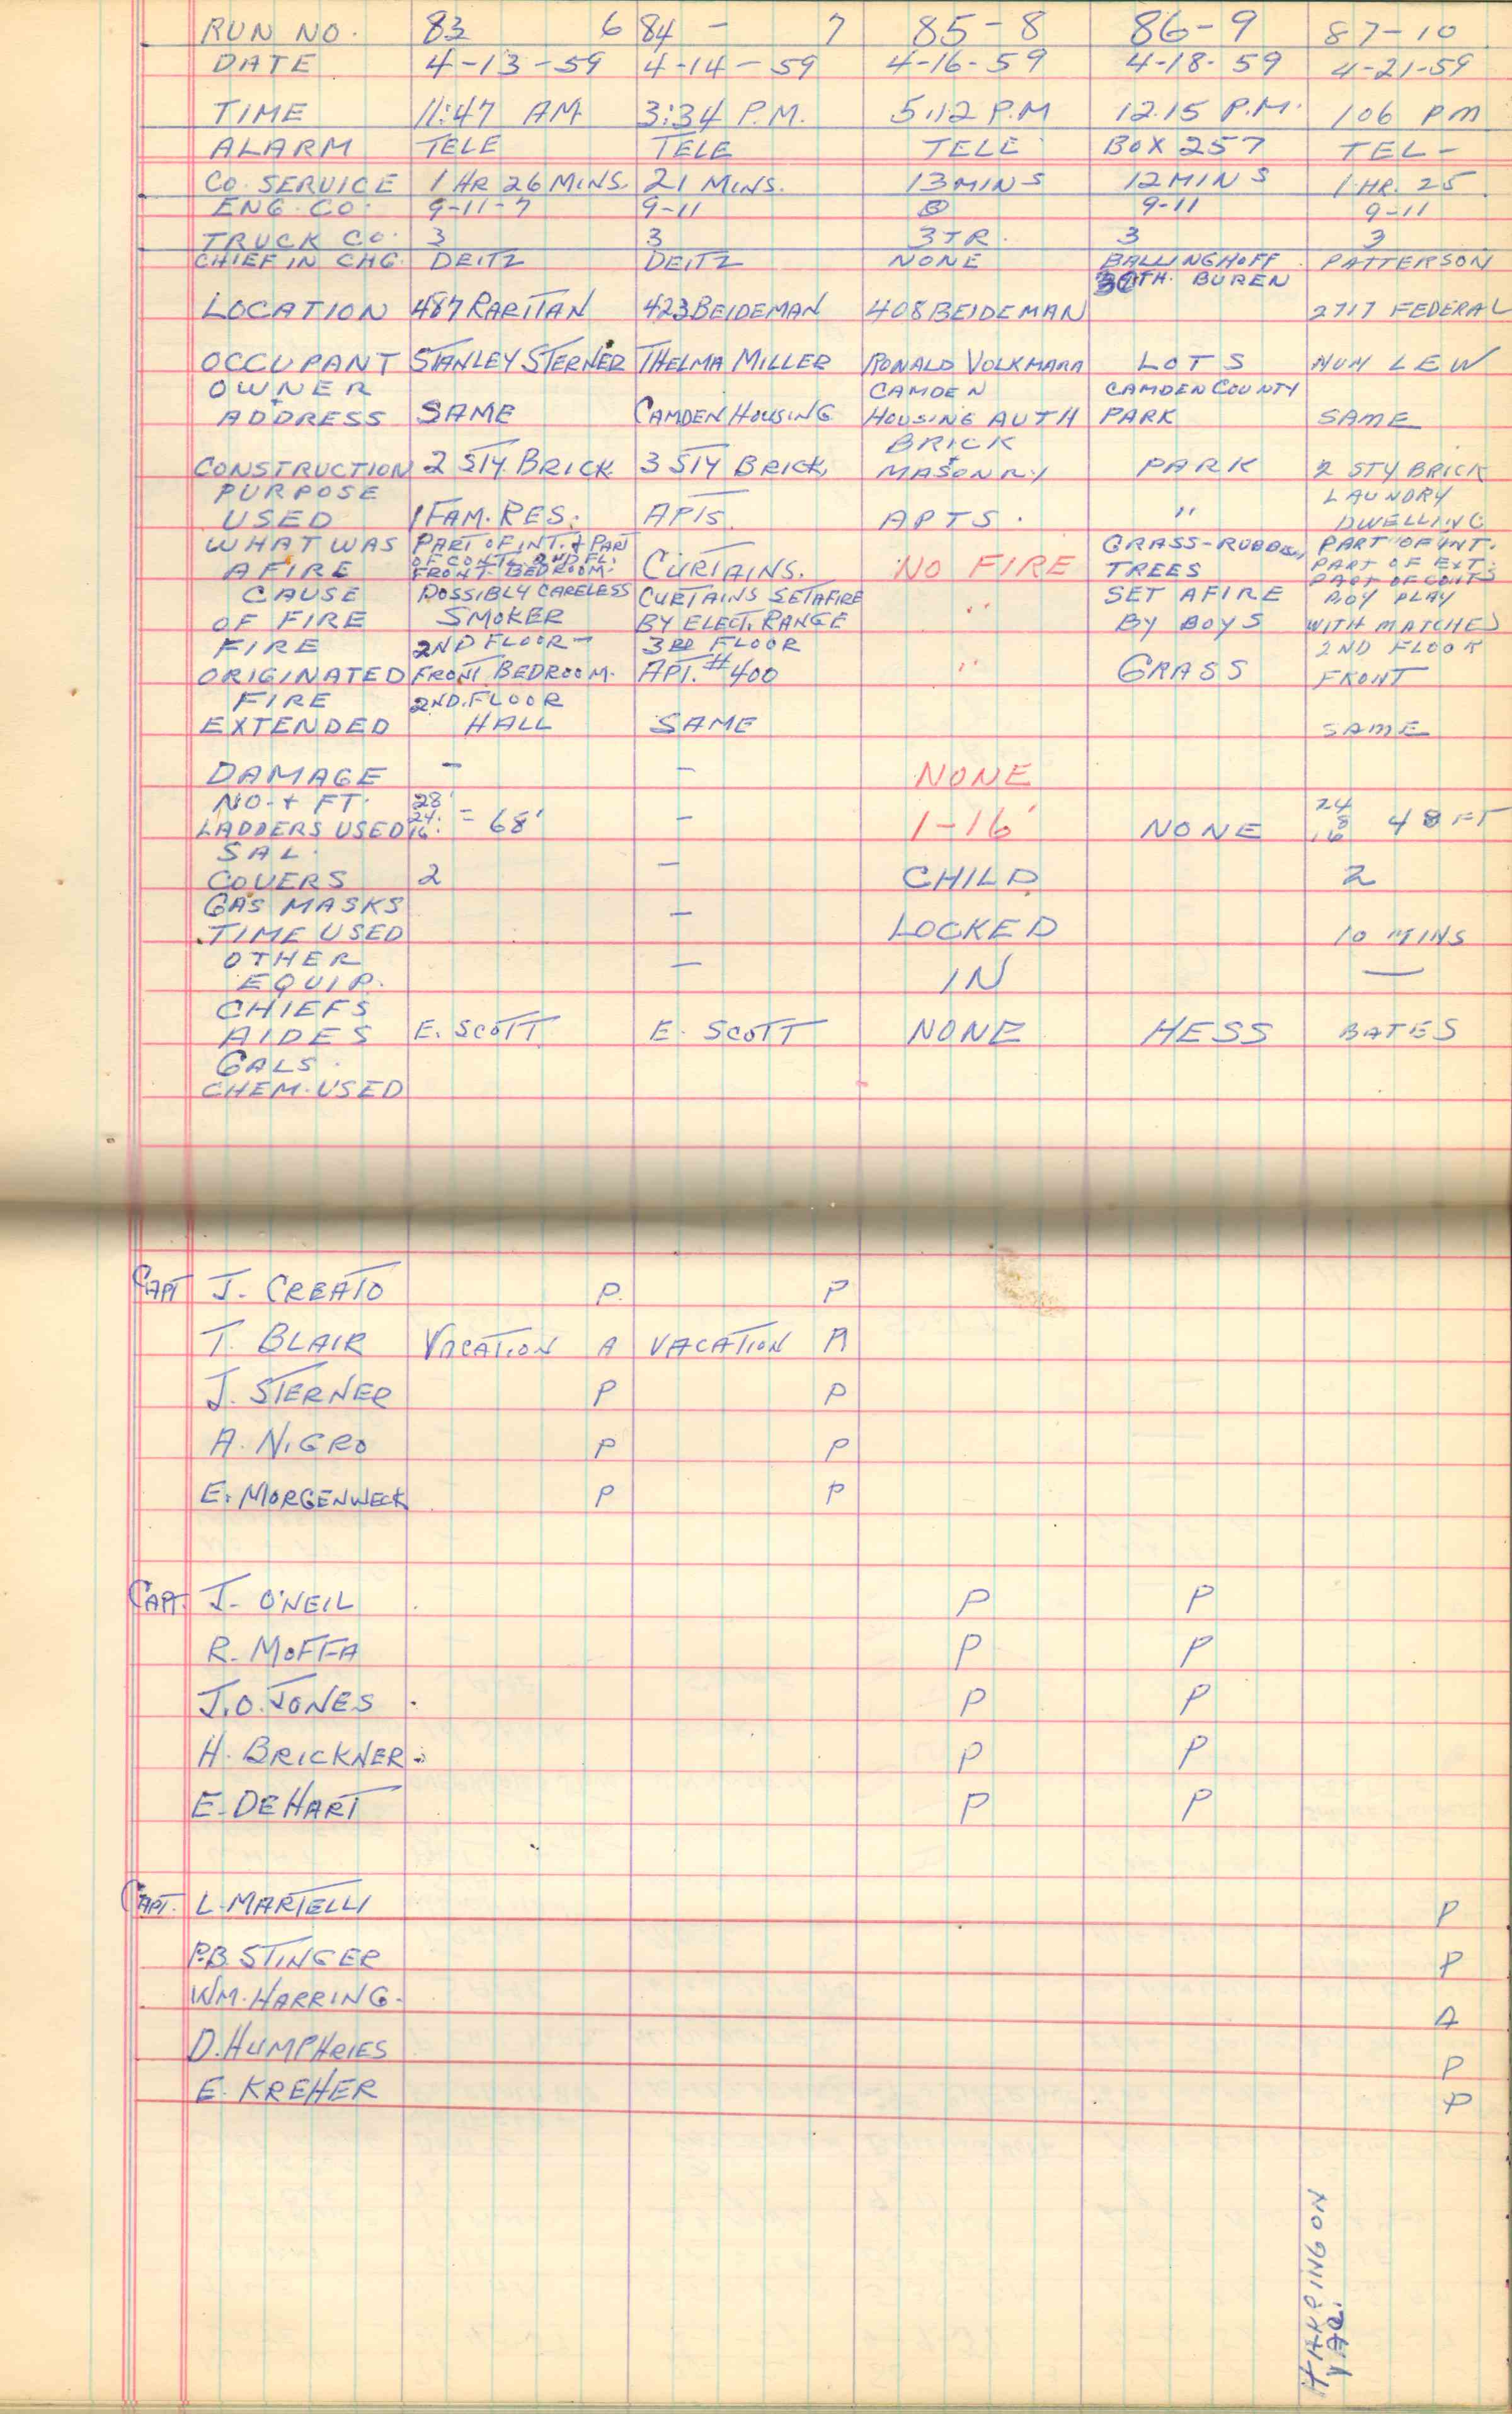 RUN NO. 83 6 84 - 7 85-8 86-9 87-10
DATE 4-13-59 4-14-59 4-16-59 4-18-59 4-21-59
TIME 11:47 AM 3:34 P.M. 5:12 P.M 12.15 P.M. 106 PM
ALARM TELE TELE TELE BOX 257 TEL-
CO. SERVICE 1 HR 26 MINS. 21 MINS. 13 MINS 12 MINS 1 HR. 25
ENG. CO. 9-11-7 9-11 9-11 9-11
TRUCK CO. 3 3 3 TR. 3 3
CHIEF IN CHG. DEITZ DEITZ NONE BALLINGHOFF PATTERSON
30TH. BUREN
LOCATION 487 RARITAN 423 BEIDEMAN 408 BEIDEMAN 2717 FEDERAL
OCCUPANT STANLEY STERNER THELMA MILLER RONALD VOLKMARA LOTS HUM LEW
OWNER CAMDEN CAMDEN COUNTY
+ ADDRESS SAME CAMDEN HOUSING HOUSING AUTH PARK SAME
BRICK
CONSTRUCTION 2 STY. BRICK 3 STY BRICK + MASONRY PARK 2 STY BRICK
PURPOSE LAUNDRY
USED 1 FAM. RES. APTS. APTS. " DWELLING
WHAT WAS PART OF INT. & PART GRASS- PART OF INT.
OF CONT. 2ND FL. PART OF EXT.
AFIRE FRONT BEDROOM. CURTAINS. NO FIRE TREES PART OF CONTS
CAUSE POSSIBLY CARELESS CURTAINS SET AFIRE SET AFIRE BOY PLAY
OF FIRE SMOKER BY ELECT. RANGE " BY BOYS WITH MATCHES
FIRE 2ND FLOOR- 3RD FLOOR 2ND FLOOR
ORIGINATED FRONT BEDROOM. APT. #400 " GRASS FRONT
FIRE 2ND. FLOOR
EXTENDED HALL SAME SAME
DAMAGE - - NONE
NO. + FT. 28' 24
LADDERS USED 24' 16' = 68' - 1-16' NONE 8 16 48 FT
SAL.
COVERS 2 - CHILD 2
GAS MASKS
TIME USED - LOCKED 10 MINS
OTHER
EQUIP. - IN -
CHIEFS
AIDES E. SCOTT E. SCOTT NONE HESS BATES
GALS.
CHEM. USED
CAPT J. CREATO P. P
T. BLAIR VACATION A VACATION A
J. STERNER P P
A. NIGRO P P
E. MORGENWECK P P
CAPT. J. O'NEIL P P
R. MOFFA P P
J.O. JONES P P
H. BRICKNER P P
E. DEHART P P
CAPT. L. MARTELLI P
P.B. STINGER P
WM. HARRING. A
D. HUMPHRIES P
E. KREHER P
HARRING ON
VAC.